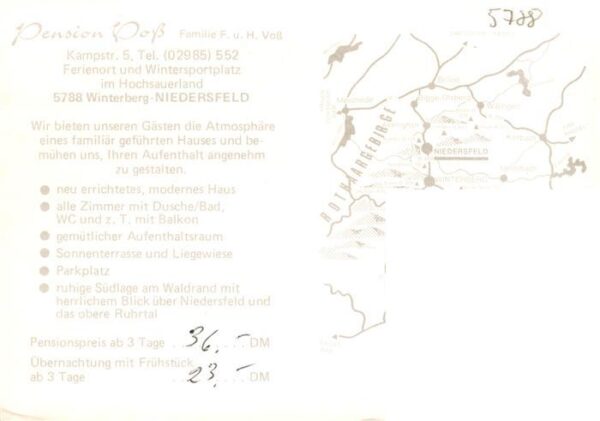 Pension Voß Familie F. u. H. Voß
Kampstr. 5, Tel. (02985) 552
Ferienort und Wintersportplatz
im Hochsauerland
5788 Winterberg-NIEDERSFELD
Wir bieten unseren Gästen die Atmosphäre
eines familiär geführten Hauses und be-
mühen uns, Ihren Aufenthalt angenehm
zu gestalten.
● neu errichtetes, modernes Haus
● alle Zimmer mit Dusche/Bad,
WC und z. T. mit Balkon
● gemütlicher Aufenthaltsraum
● Sonnenterrasse und Liegewiese
● Parkplatz
● ruhige Südlage am Waldrand mit
herrlichem Blick über Niedersfeld und
das obere Ruhrtal
Pensionspreis ab 3 Tage . . 36,- . . . DM
Übernachtung mit Frühstück
ab 3 Tage . . 23,- . . . DM
5788
Meschede
Brilon
Willingen
NIEDERSFELD
WINTERBERG
ROTHAARGEBIRGE